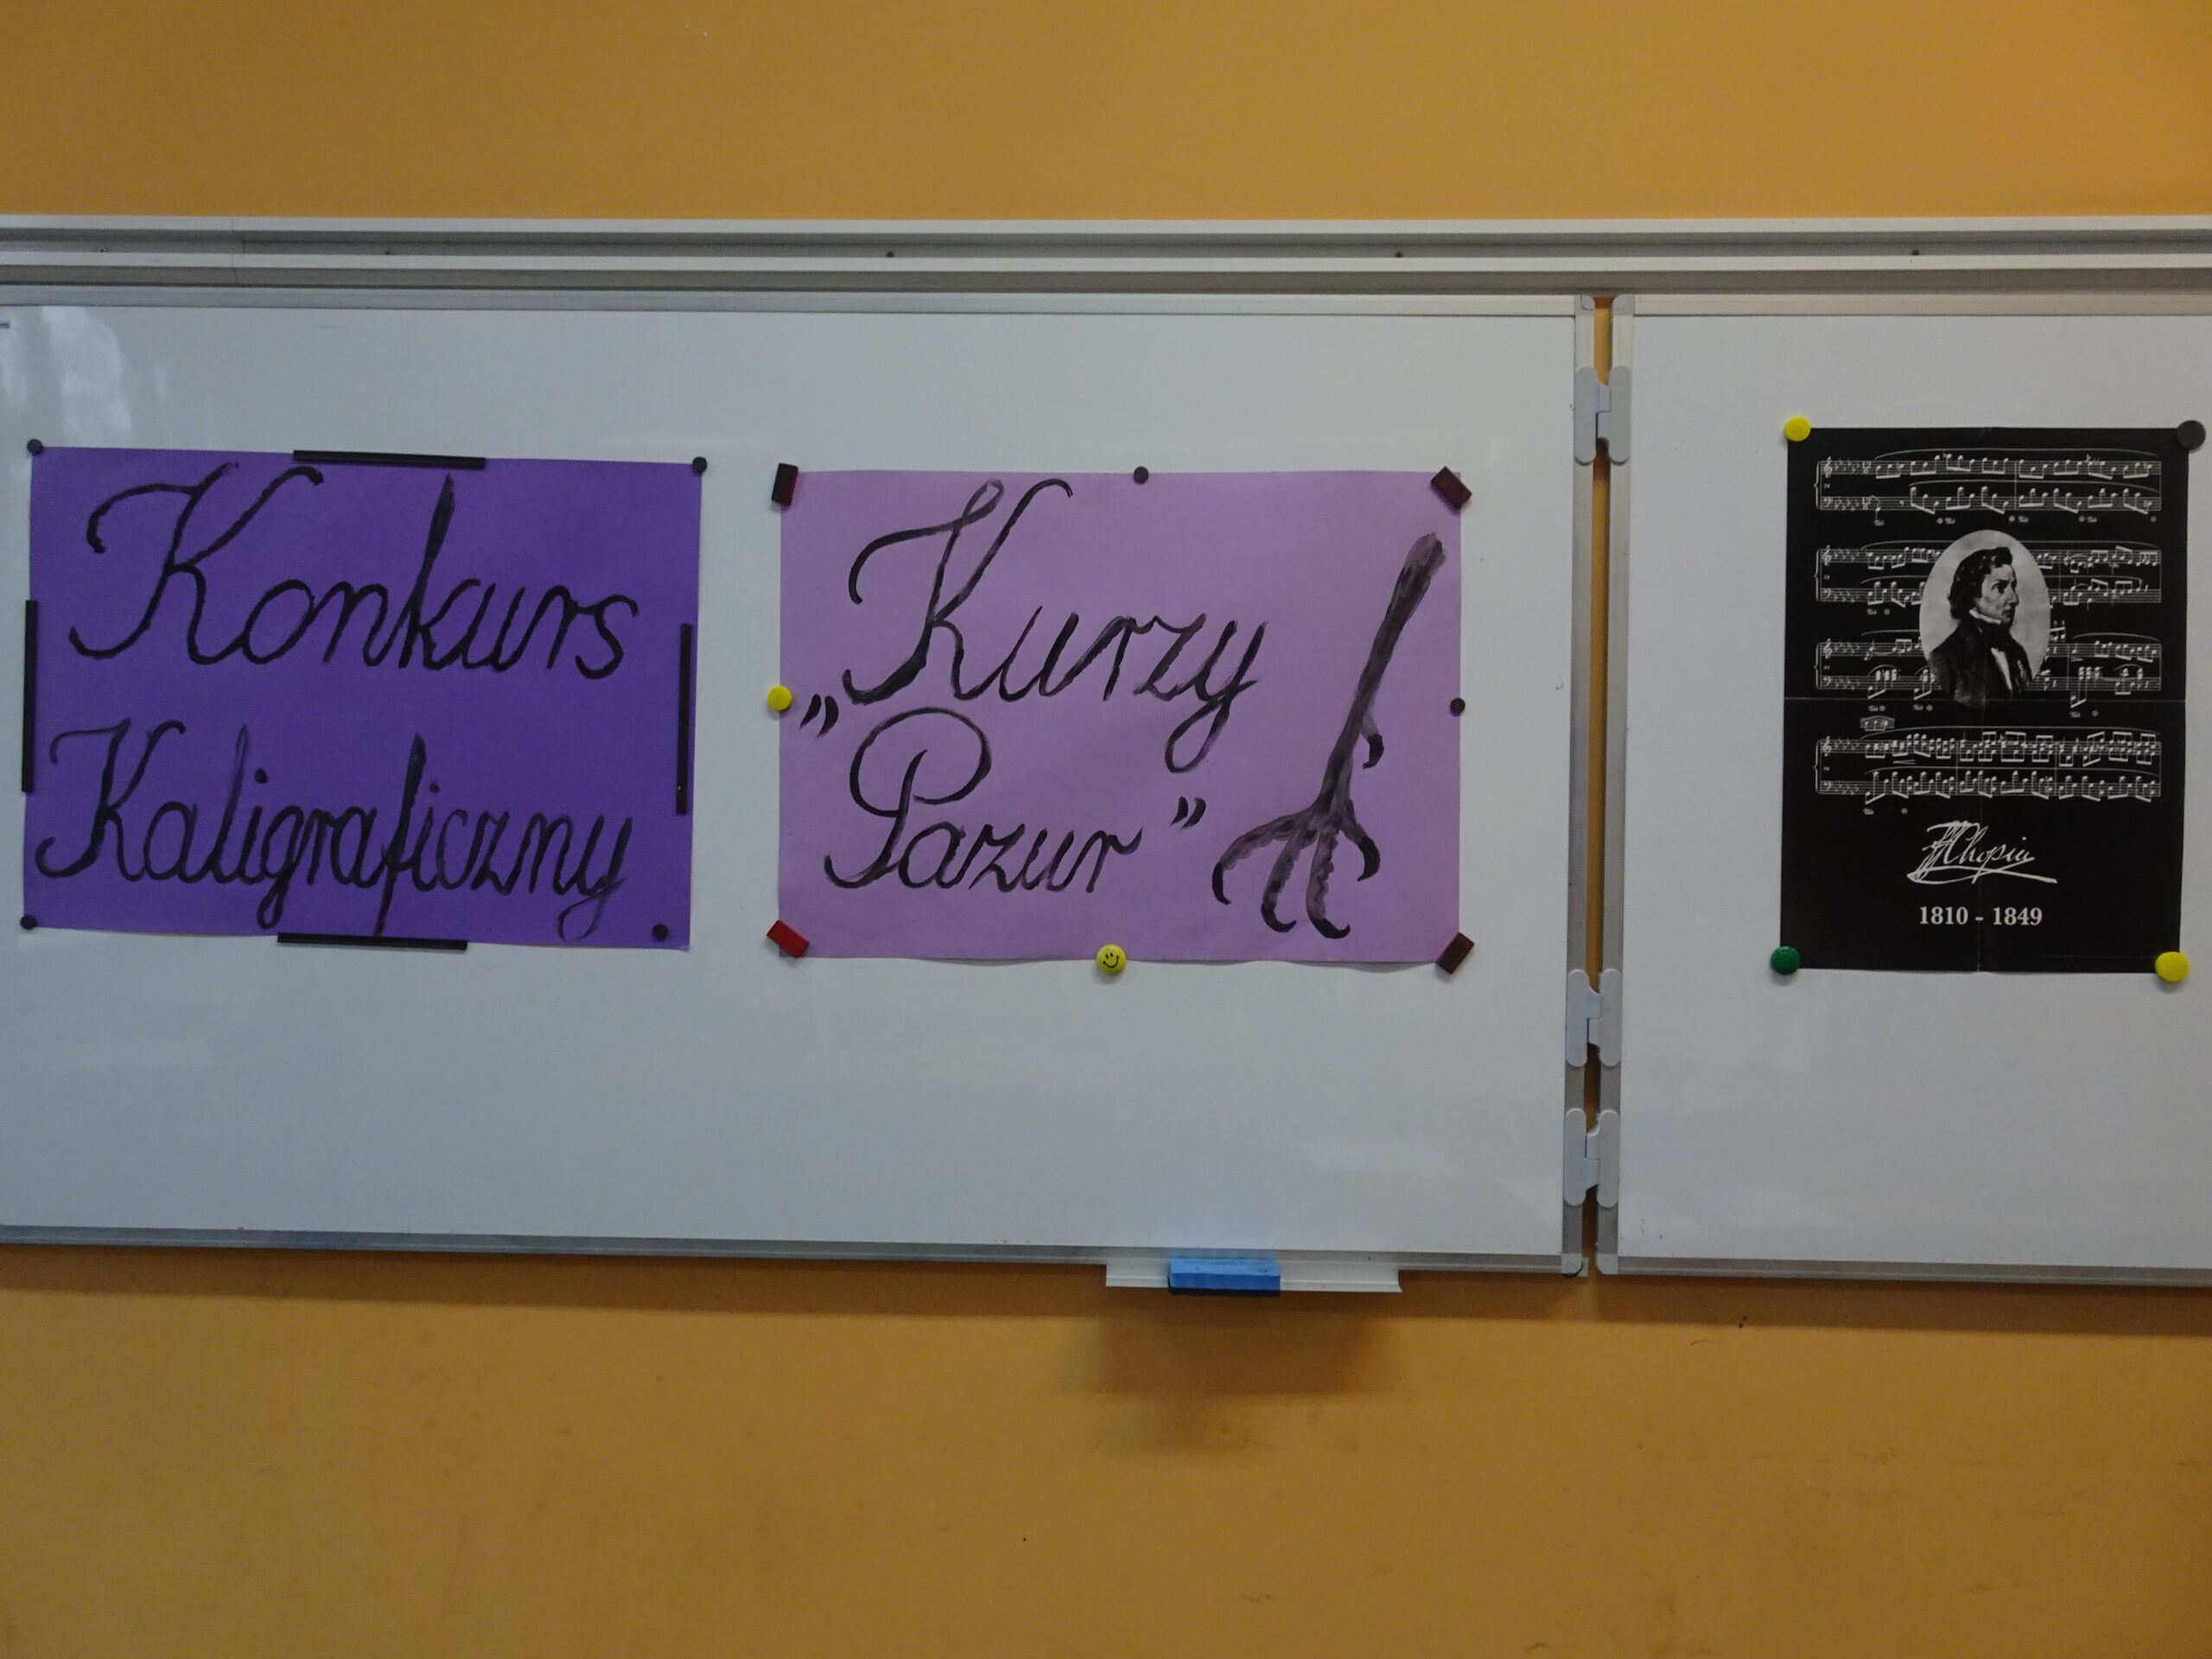 Konkurs
Kaligraficzny
„Kurzy
Pazur”
FFChopin
1810 - 1849